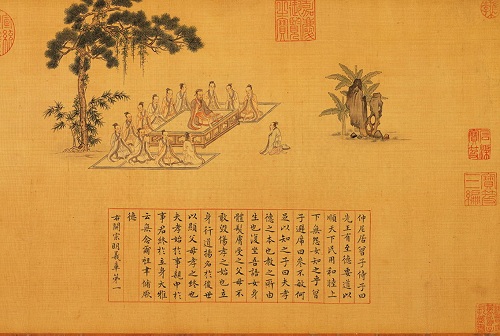 嘉慶御覽之寶
石渠寶笈
寶笈三編
仲尼居曾子侍子曰
先王有至德要道以
順天下民用和睦上
下無怨女知之乎曾
子避席曰參不敏何
足以知之子曰夫孝
德之本也教之所由
生也復坐吾語女身
體髮膚受之父母不
敢毀傷孝之始也立
身行道揚名於後世
以顯父母孝之終也
夫孝始於事親中於
事君終於立身大雅
云無念爾祖聿脩厥
德
右開宗明義章第一